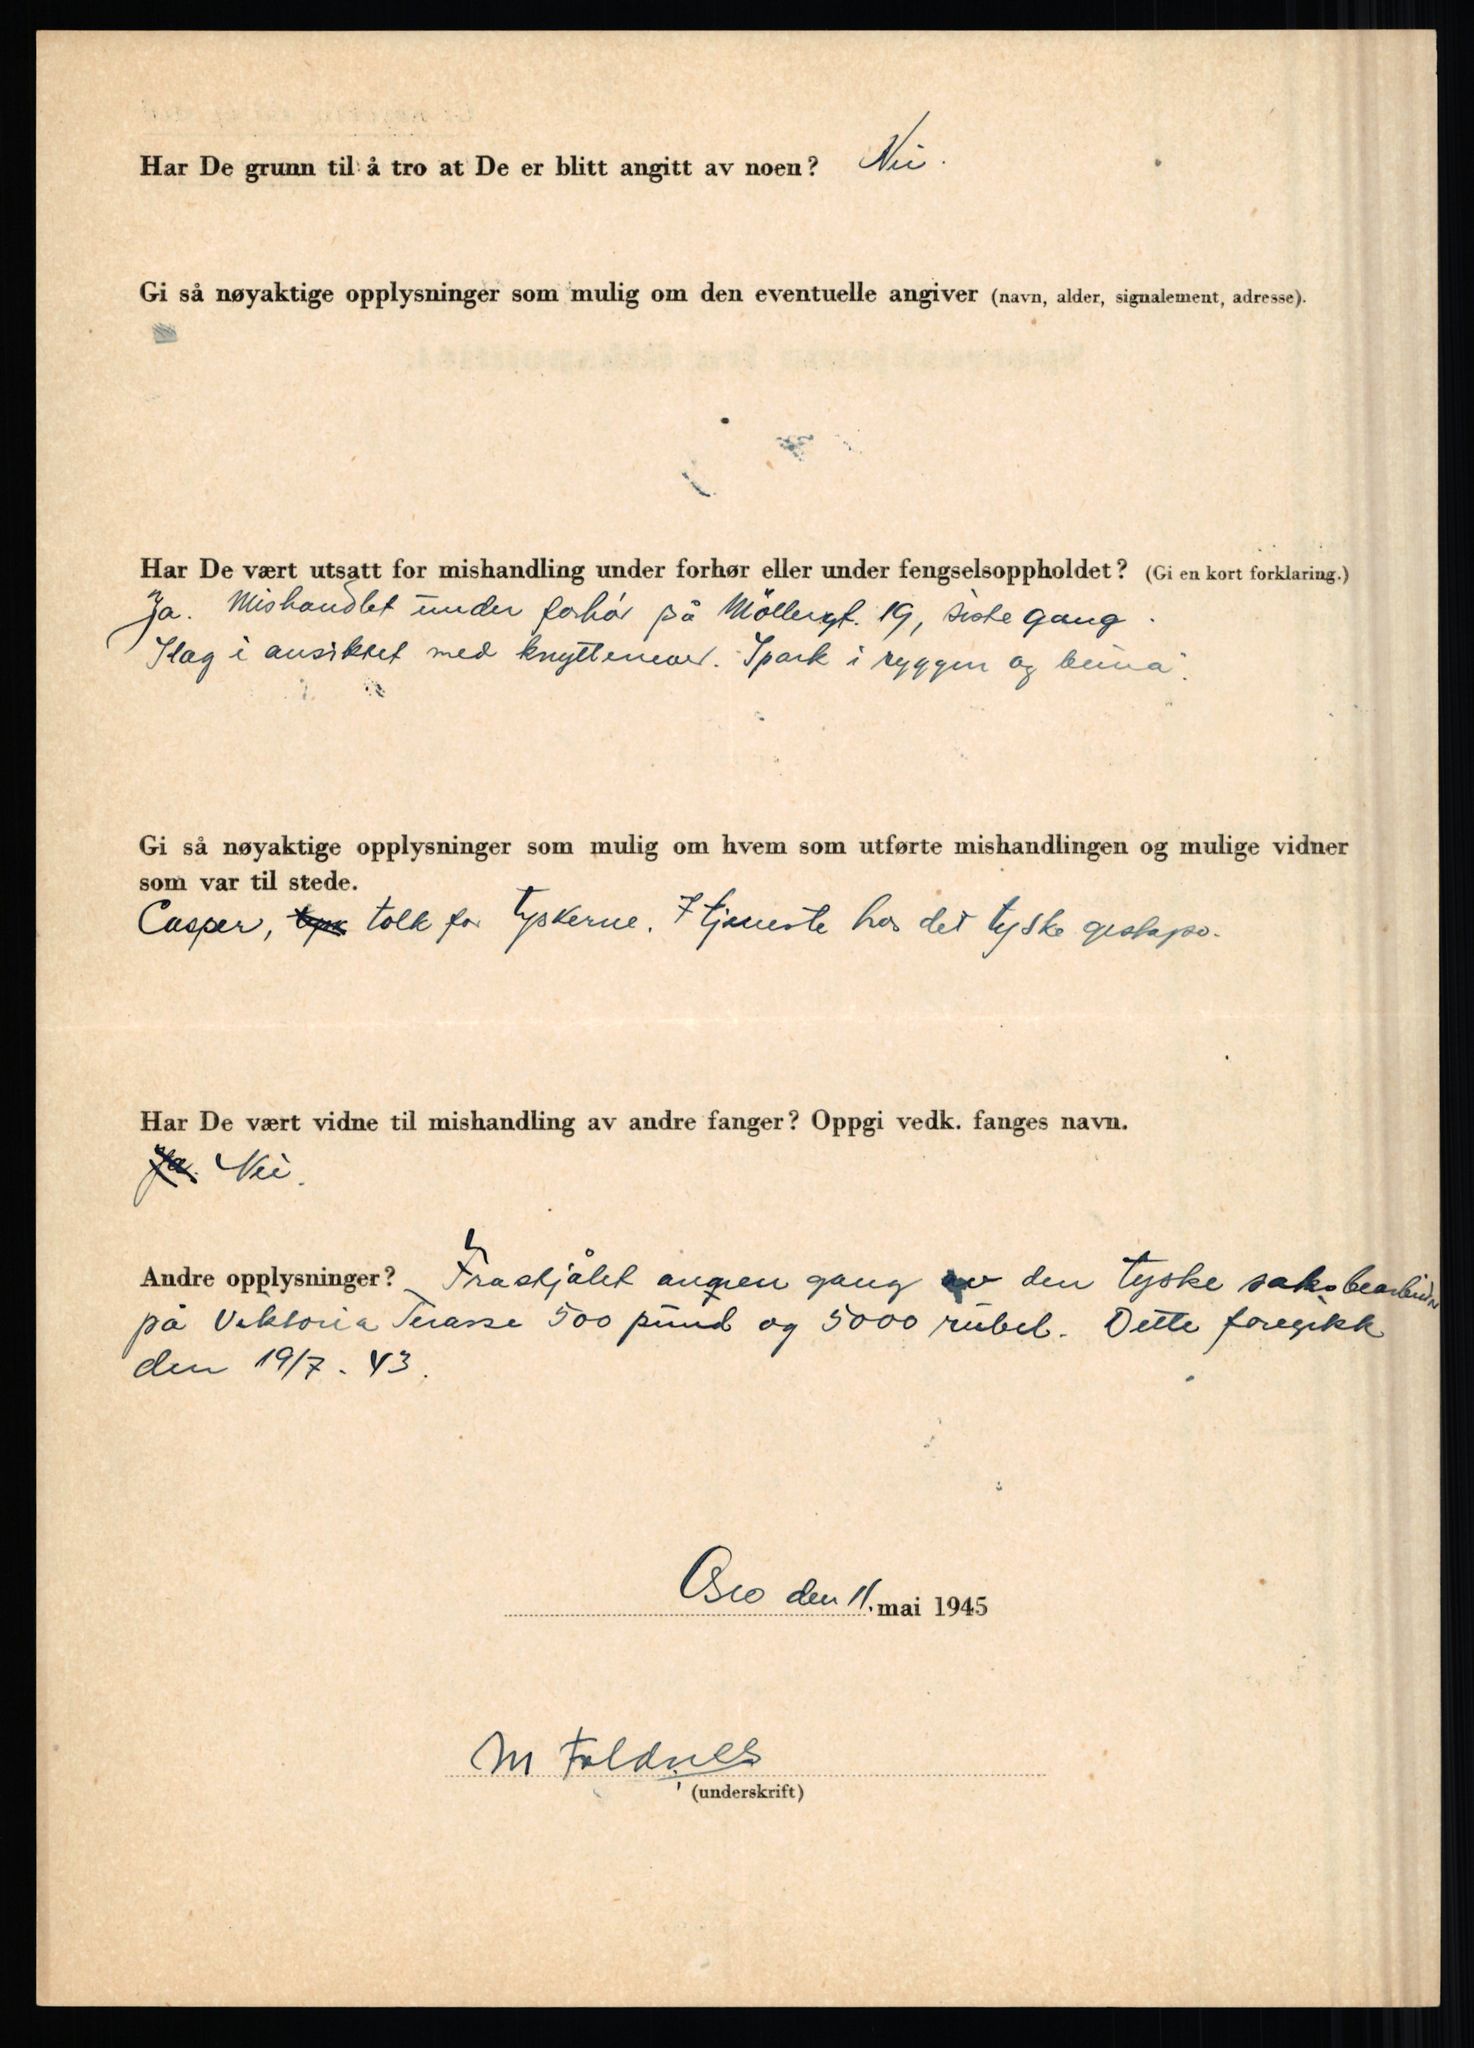 Har De grunn til å tro at De er blitt angitt av noen? Nei.
Gi så nøyaktige opplysninger som mulig om den eventuelle angiver (navn, alder, signalement, adresse).
Har De vært utsatt for mishandling under forhør eller under fengselsoppholdet? (Gi en kort forklaring.)
Ja. Mishandlet under forhør på Möllergt. 19, siste gang.
Slag i ansiktet med knyttnever. Spark i ryggen og beina.
Gi så nøyaktige opplysninger som mulig om hvem som utførte mishandlingen og mulige vidner
som var til stede.
Casper, tolk for tyskerne. I tjeneste hos det tyske gestapo.
Har De vært vidne til mishandling av andre fanger? Oppgi vedk. fanges navn.
Ja. Nei.
Andre opplysninger? Frastjålet annen gang av den tyske saksbearbeider
på Viktoria Terasse 500 pund og 5000 rubel. Dette foregikk
den 19/7 - 43.
Oslo den 11. mai 1945
M Foldnes
(underskrift)